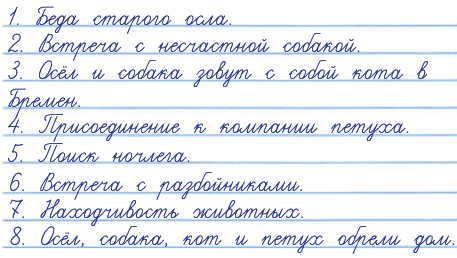 1. Беда старого осла.
2. Встреча с несчастной собакой.
3. Осёл и собака зовут с собой кота в
Бремен.
4. Присоединение к компании петуха.
5. Поиск ночлега.
6. Встреча с разбойниками.
7. Находчивость животных.
8. Осёл, собака, кот и петух обрели дом.